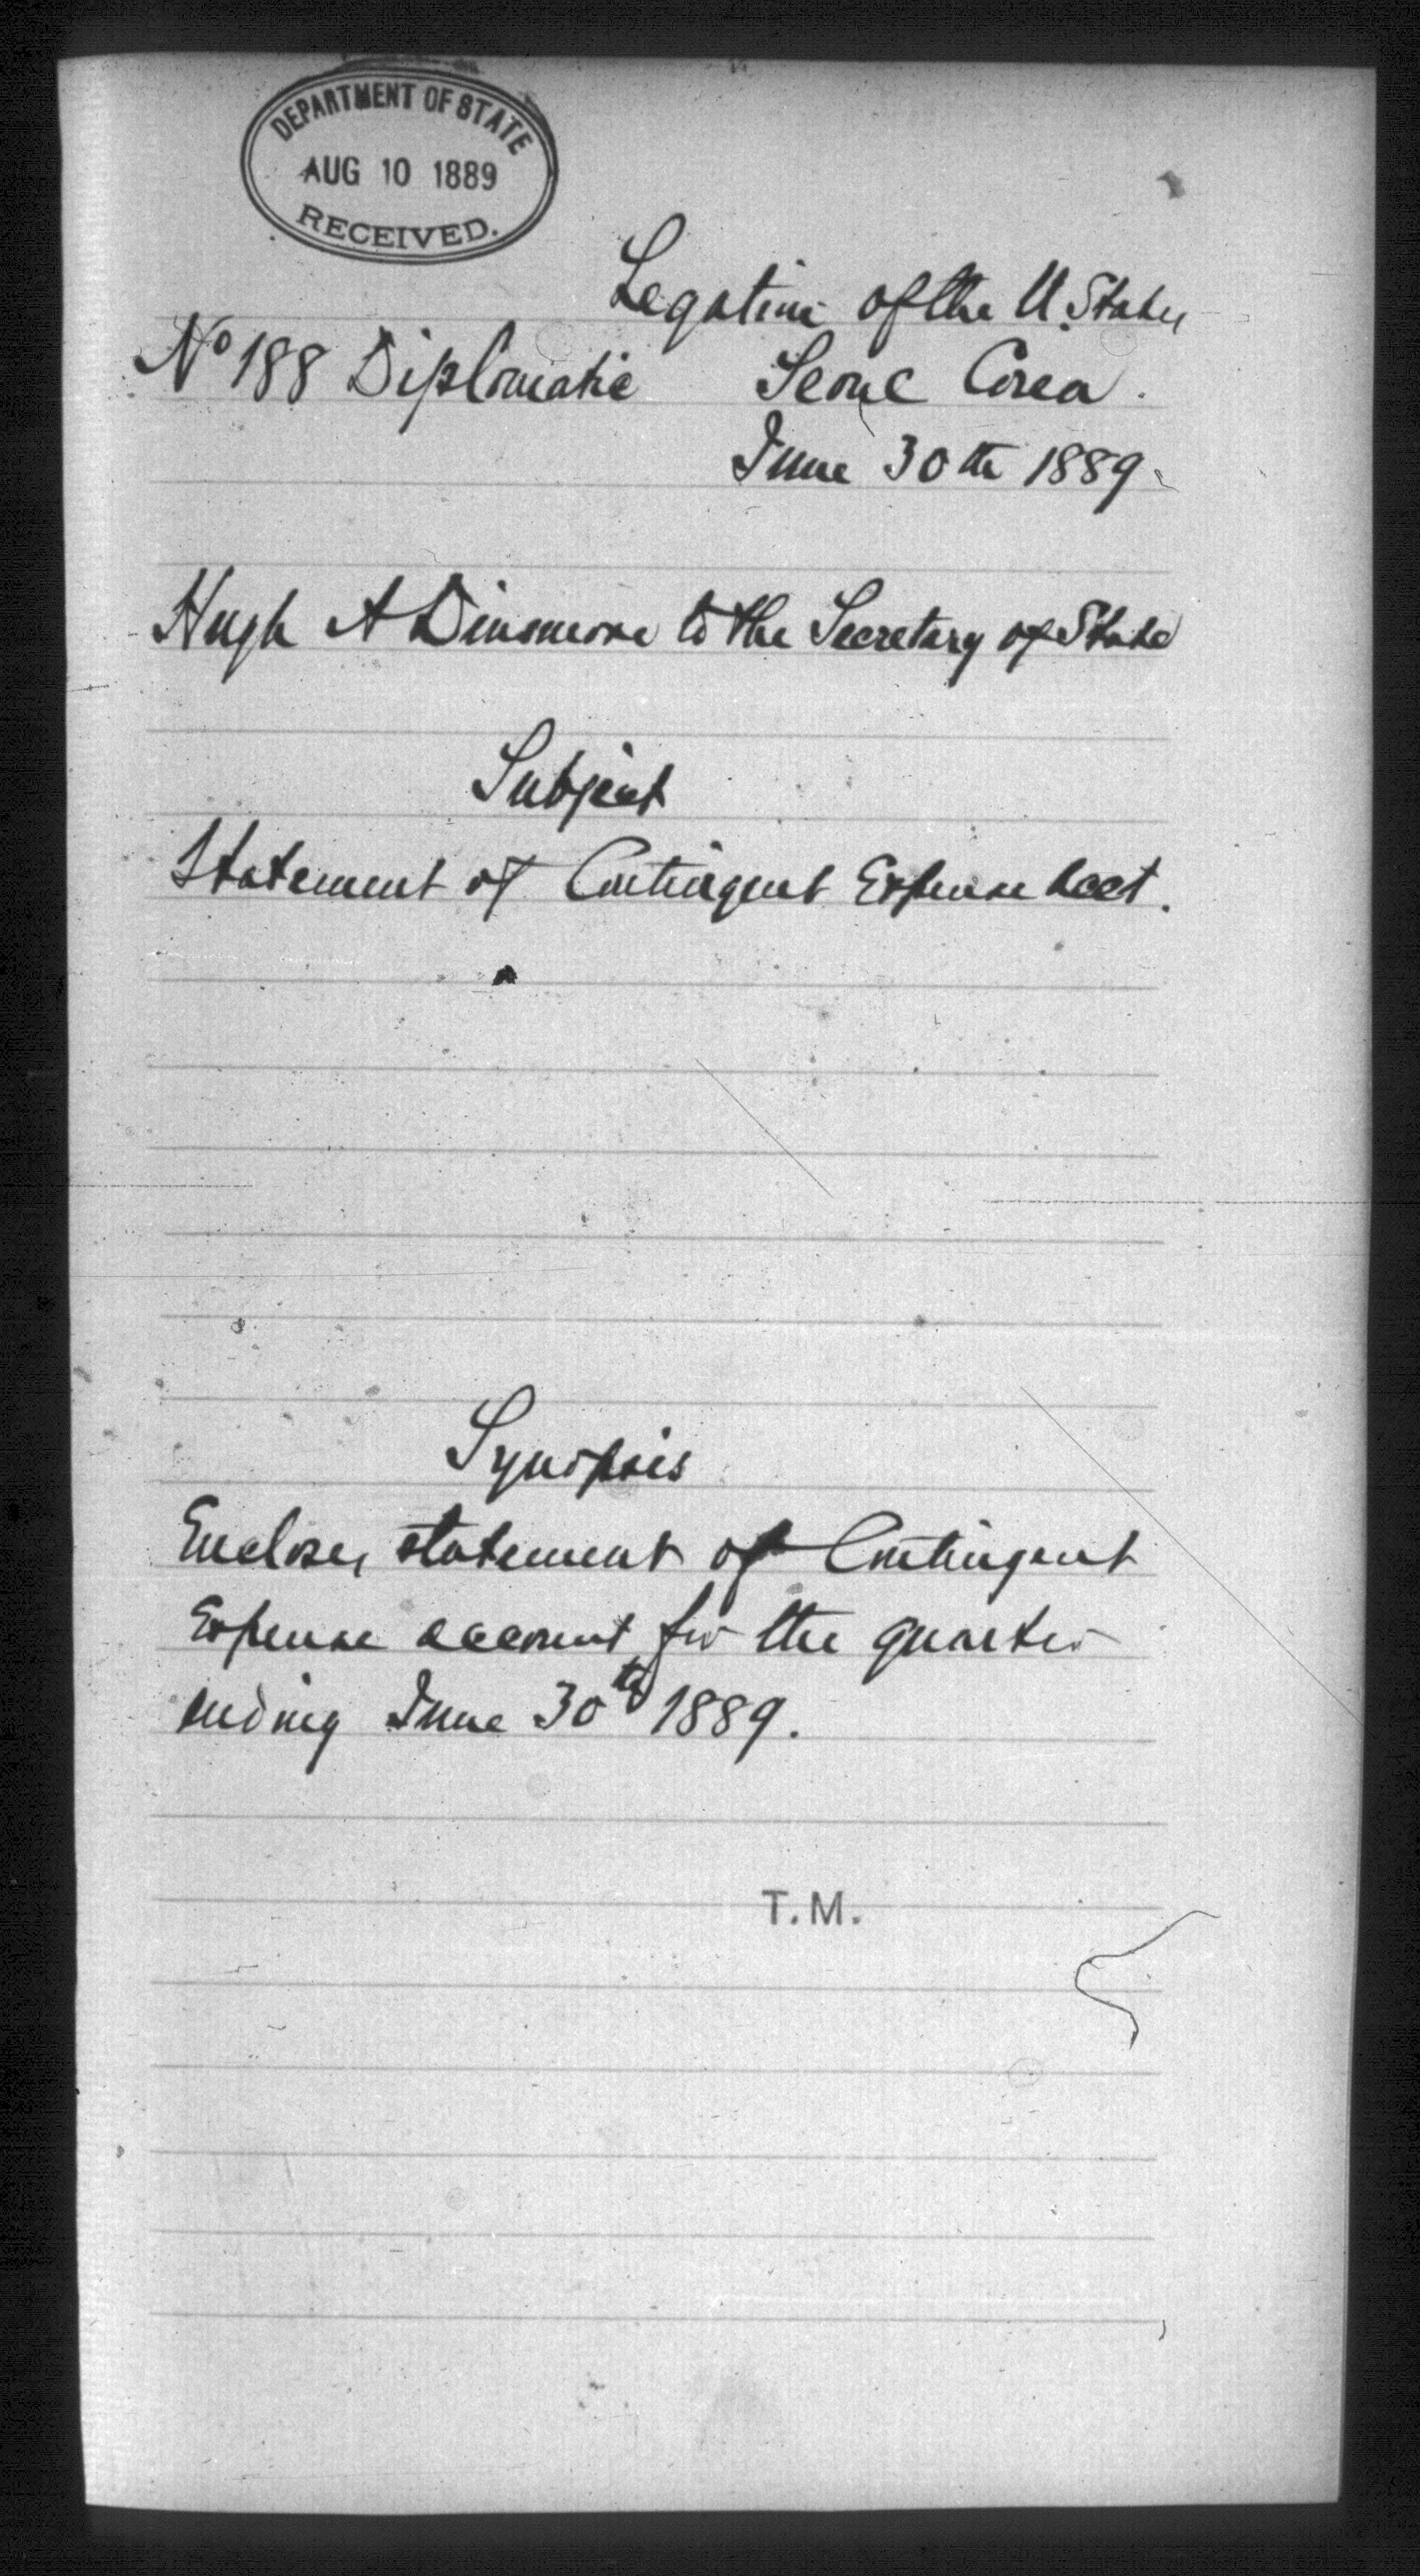 DEPARTMENT OF STATE
AUG 10 1889
RECEIVED.
Legation of the U. States
No 188 Diplomatic Seoul Corea.
June 30th 1889.
Hugh A Dinsmore to the Secretary of State
Subject
Statement of Contingent Expense Acct.
Synopsis
Encloses statement of Contingent
Expense account for the quarter
ending June 30th 1889.
T.M.